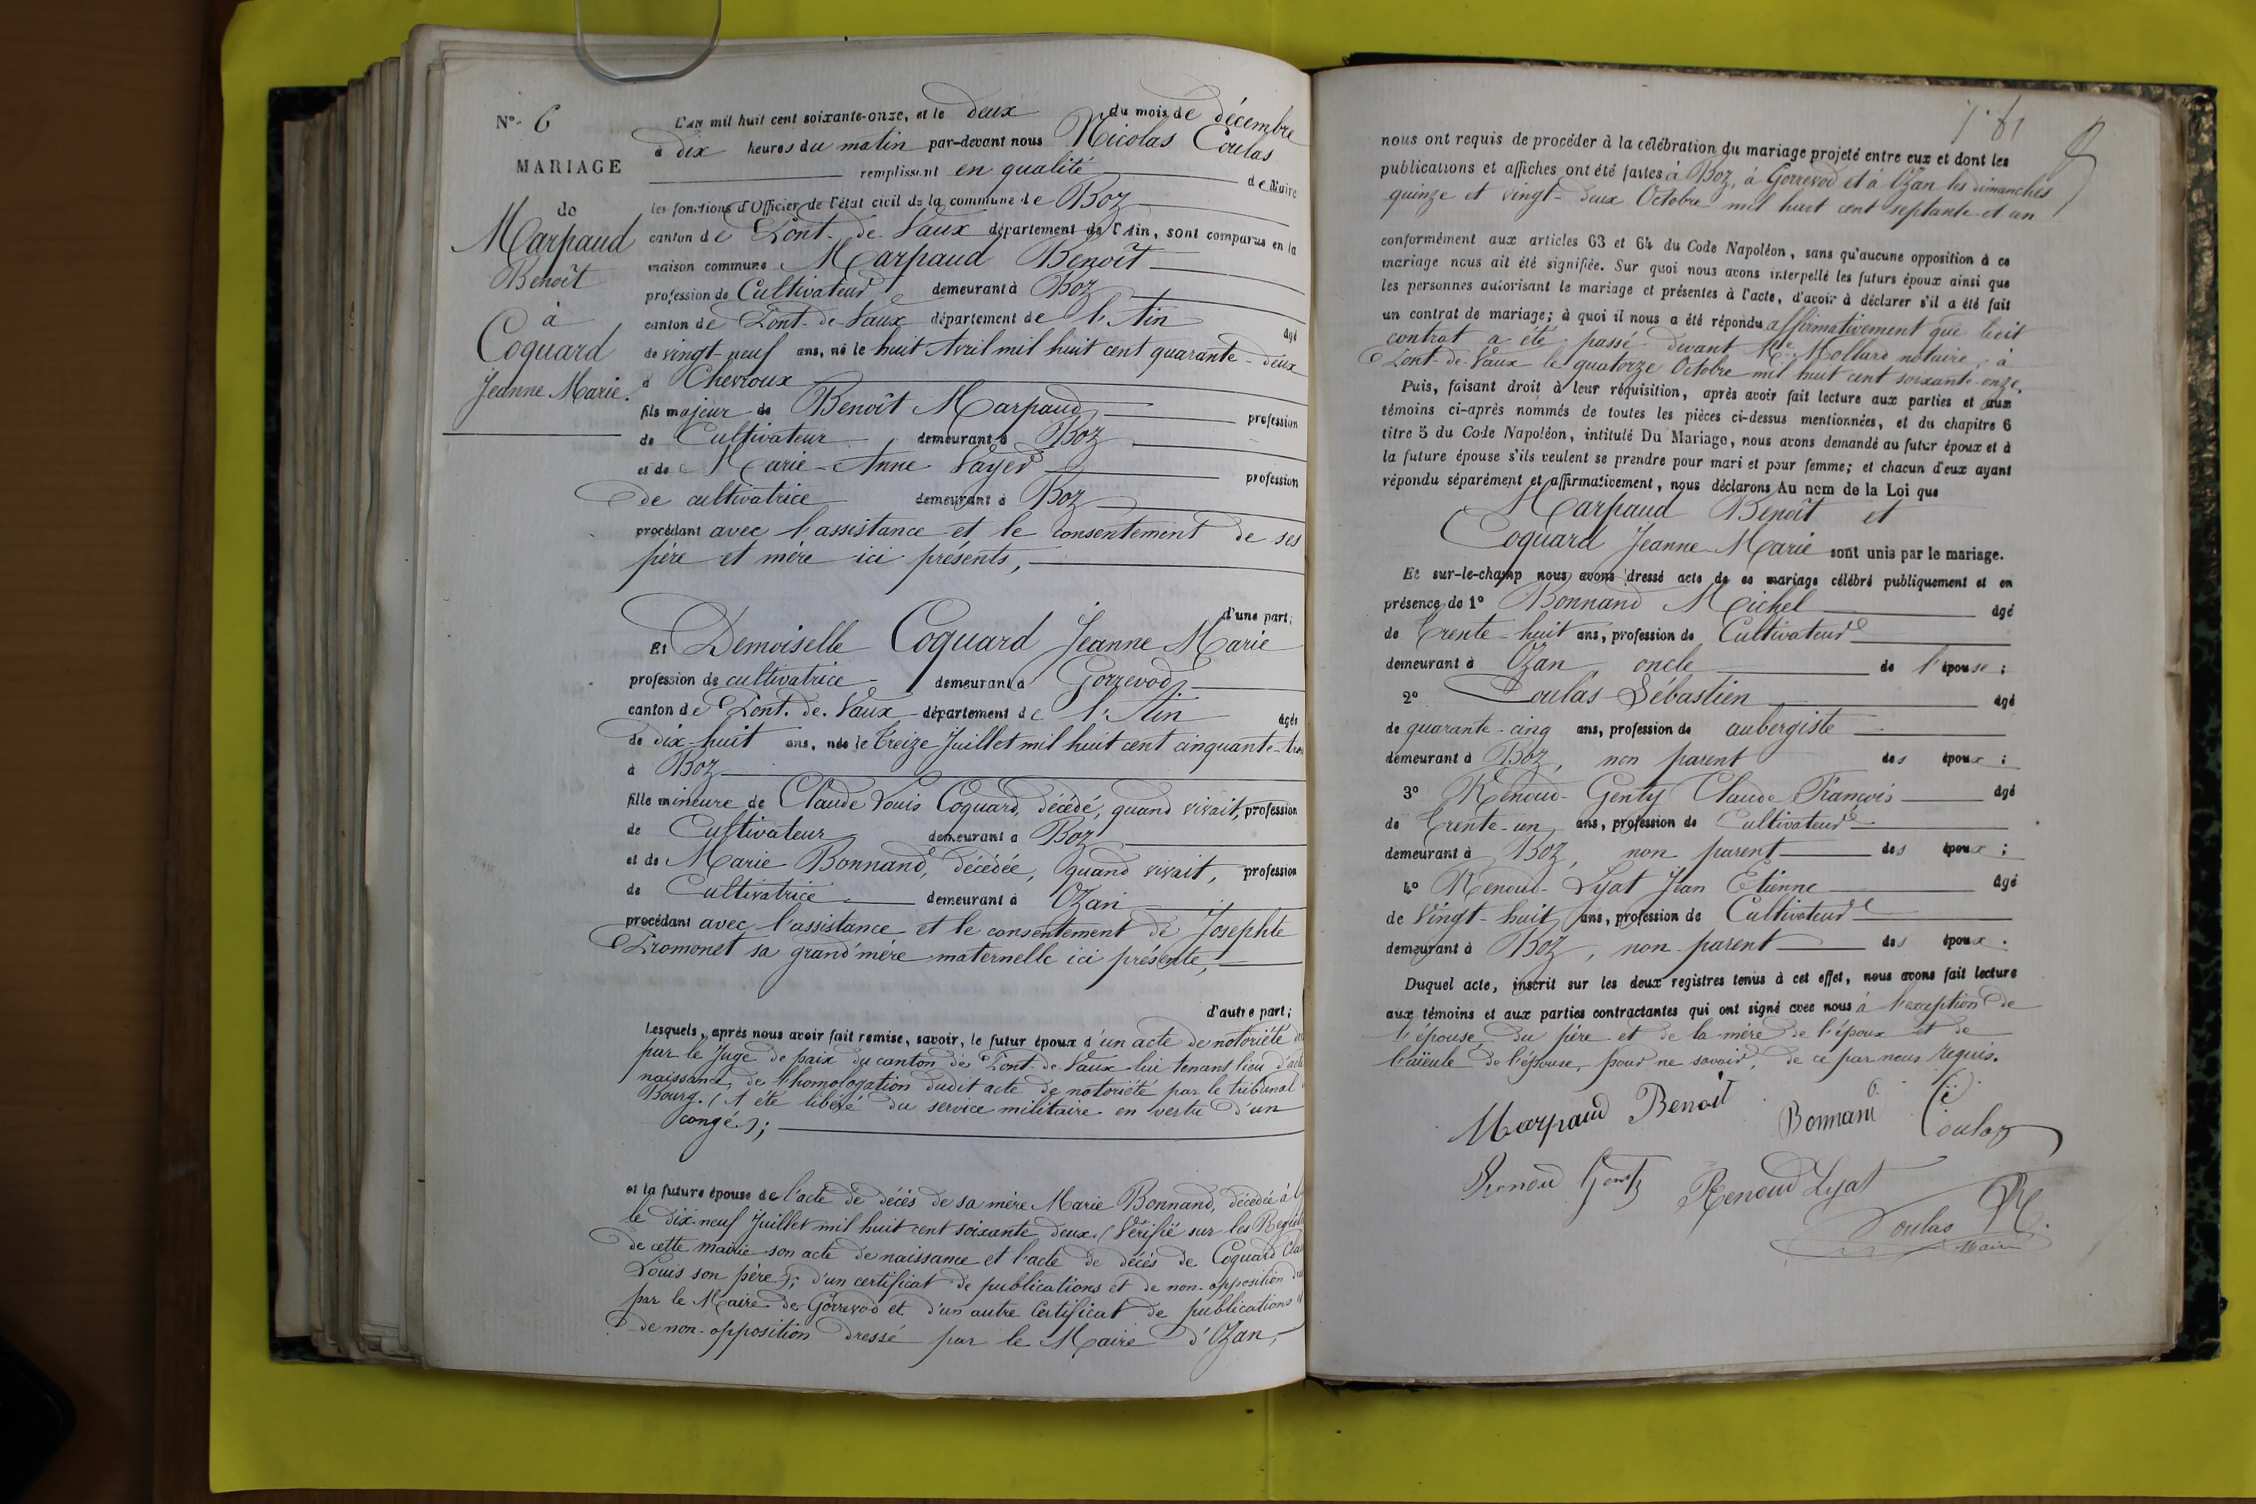 N° 6
MARIAGE
de
Marpaud
Benoît
à
Coquard
Jeanne Marie.
L'an mil huit cent soixante-onze, et le deux du mois de décembre
à dix heures du matin par-devant nous Nicolas Coulas
remplissant en qualité de Maire
les fonctions d'Officier de l'état civil de la commune de Boz
canton de Pont-de-Vaux département de l'Ain, sont comparus en la
maison commune Marpaud Benoît
profession de Cultivateur demeurant à Boz
canton de Pont-de-Vaux département de l'Ain âgé
de vingt-neuf ans, né le huit Avril mil huit cent quarante-deux
à Chevroux
fils majeur de Benoît Marpaud profession
de Cultivateur demeurant à Boz
et de Marie-Anne Vayer profession
de cultivatrice demeurant à Boz
procédant avec l'assistance et le consentement de ses
père et mère ici présents,
d'une part;
Et Demoiselle Coquard Jeanne Marie
profession de cultivatrice demeurant à Gorrevod
canton de Pont-de-Vaux département de l'Ain âgée
de dix-huit ans, née le treize Juillet mil huit cent cinquante-trois
à Boz
fille mineure de Claude Louis Coquard, décédé, quand vivait, profession
de Cultivateur demeurant à Boz
et de Marie Bonnand, décédée, quand vivait, profession
de Cultivatrice demeurant à Ozan
procédant avec l'assistance et le consentement de Josephte
Promonet sa grand'mère maternelle ici présente,
d'autre part;
Lesquels, après nous avoir fait remise, savoir, le futur époux d'un acte de notoriété
par le Juge de paix du canton de Pont-de-Vaux lui tenant lieu d'acte
naissance, de l'homologation dudit acte de notoriété par le tribunal
Bourg. (A été libéré du service militaire en vertu d'un
congé);
et la future épouse de l'acte de décès de sa mère Marie Bonnand, décédée à
le dix-neuf Juillet mil huit cent soixante deux. (Vérifié sur les
de cette mairie son acte de naissance et l'acte de décès de Coquard
Louis son père); d'un certificat de publications et de non-opposition
par le Maire de Gorrevod et d'un autre Certificat de publications
de non-opposition dressé par le Maire d'Ozan,
nous ont requis de procéder à la célébration du mariage projeté entre eux et dont les
publications et affiches ont été faites à Boz, à Gorrevod et à Ozan les dimanches
quinze et vingt-deux Octobre mil huit cent septante et un
conformément aux articles 63 et 64 du Code Napoléon, sans qu'aucune opposition à ce
mariage nous ait été signifiée. Sur quoi nous avons interpellé les futurs époux ainsi que
les personnes autorisant le mariage et présentes à l'acte, d'avoir à déclarer s'il a été fait
un contrat de mariage; à quoi il nous a été répondu affirmativement que ledit
contrat a été passé devant Mollard notaire, à
Pont-de-Vaux le quatorze Octobre mil huit cent soixante-onze.
Puis, faisant droit à leur réquisition, après avoir fait lecture aux parties et aux
témoins ci-après nommés de toutes les pièces ci-dessus mentionnées, et du chapitre 6
titre 5 du Code Napoléon, intitulé Du Mariage, nous avons demandé au futur époux et à
la future épouse s'ils veulent se prendre pour mari et pour femme; et chacun d'eux ayant
répondu séparément et affirmativement, nous déclarons Au nom de la Loi que
Marpaud Benoît et
Coquard Jeanne-Marie sont unis par le mariage.
Et sur-le-champ nous avons dressé acte de ce mariage célébré publiquement et en
présence de 1° Bonnand Michel âgé
de trente-huit ans, profession de Cultivateur
demeurant à Ozan, oncle de l'épouse;
2° Coulas Sébastien âgé
de quarante-cinq ans, profession de aubergiste
demeurant à Boz, non parent des époux;
3° Renoud-Genty Claude François âgé
de trente-un ans, profession de Cultivateur
demeurant à Boz, non parent des époux;
4° Renoud-Lyat Jean Etienne âgé
de Vingt-huit ans, profession de Cultivateur
demeurant à Boz, non parent des époux.
Duquel acte, inscrit sur les deux registres tenus à cet effet, nous avons fait lecture
aux témoins et aux parties contractantes qui ont signé avec nous à l'exception de
l'épouse, du père et de la mère de l'époux et de
l'aïeule de l'épouse, pour ne savoir, de ce par nous requis.
Marpaud Benoit Bonnand Coulas
Renou Genty Renoud Lyat
Coulas
Maire